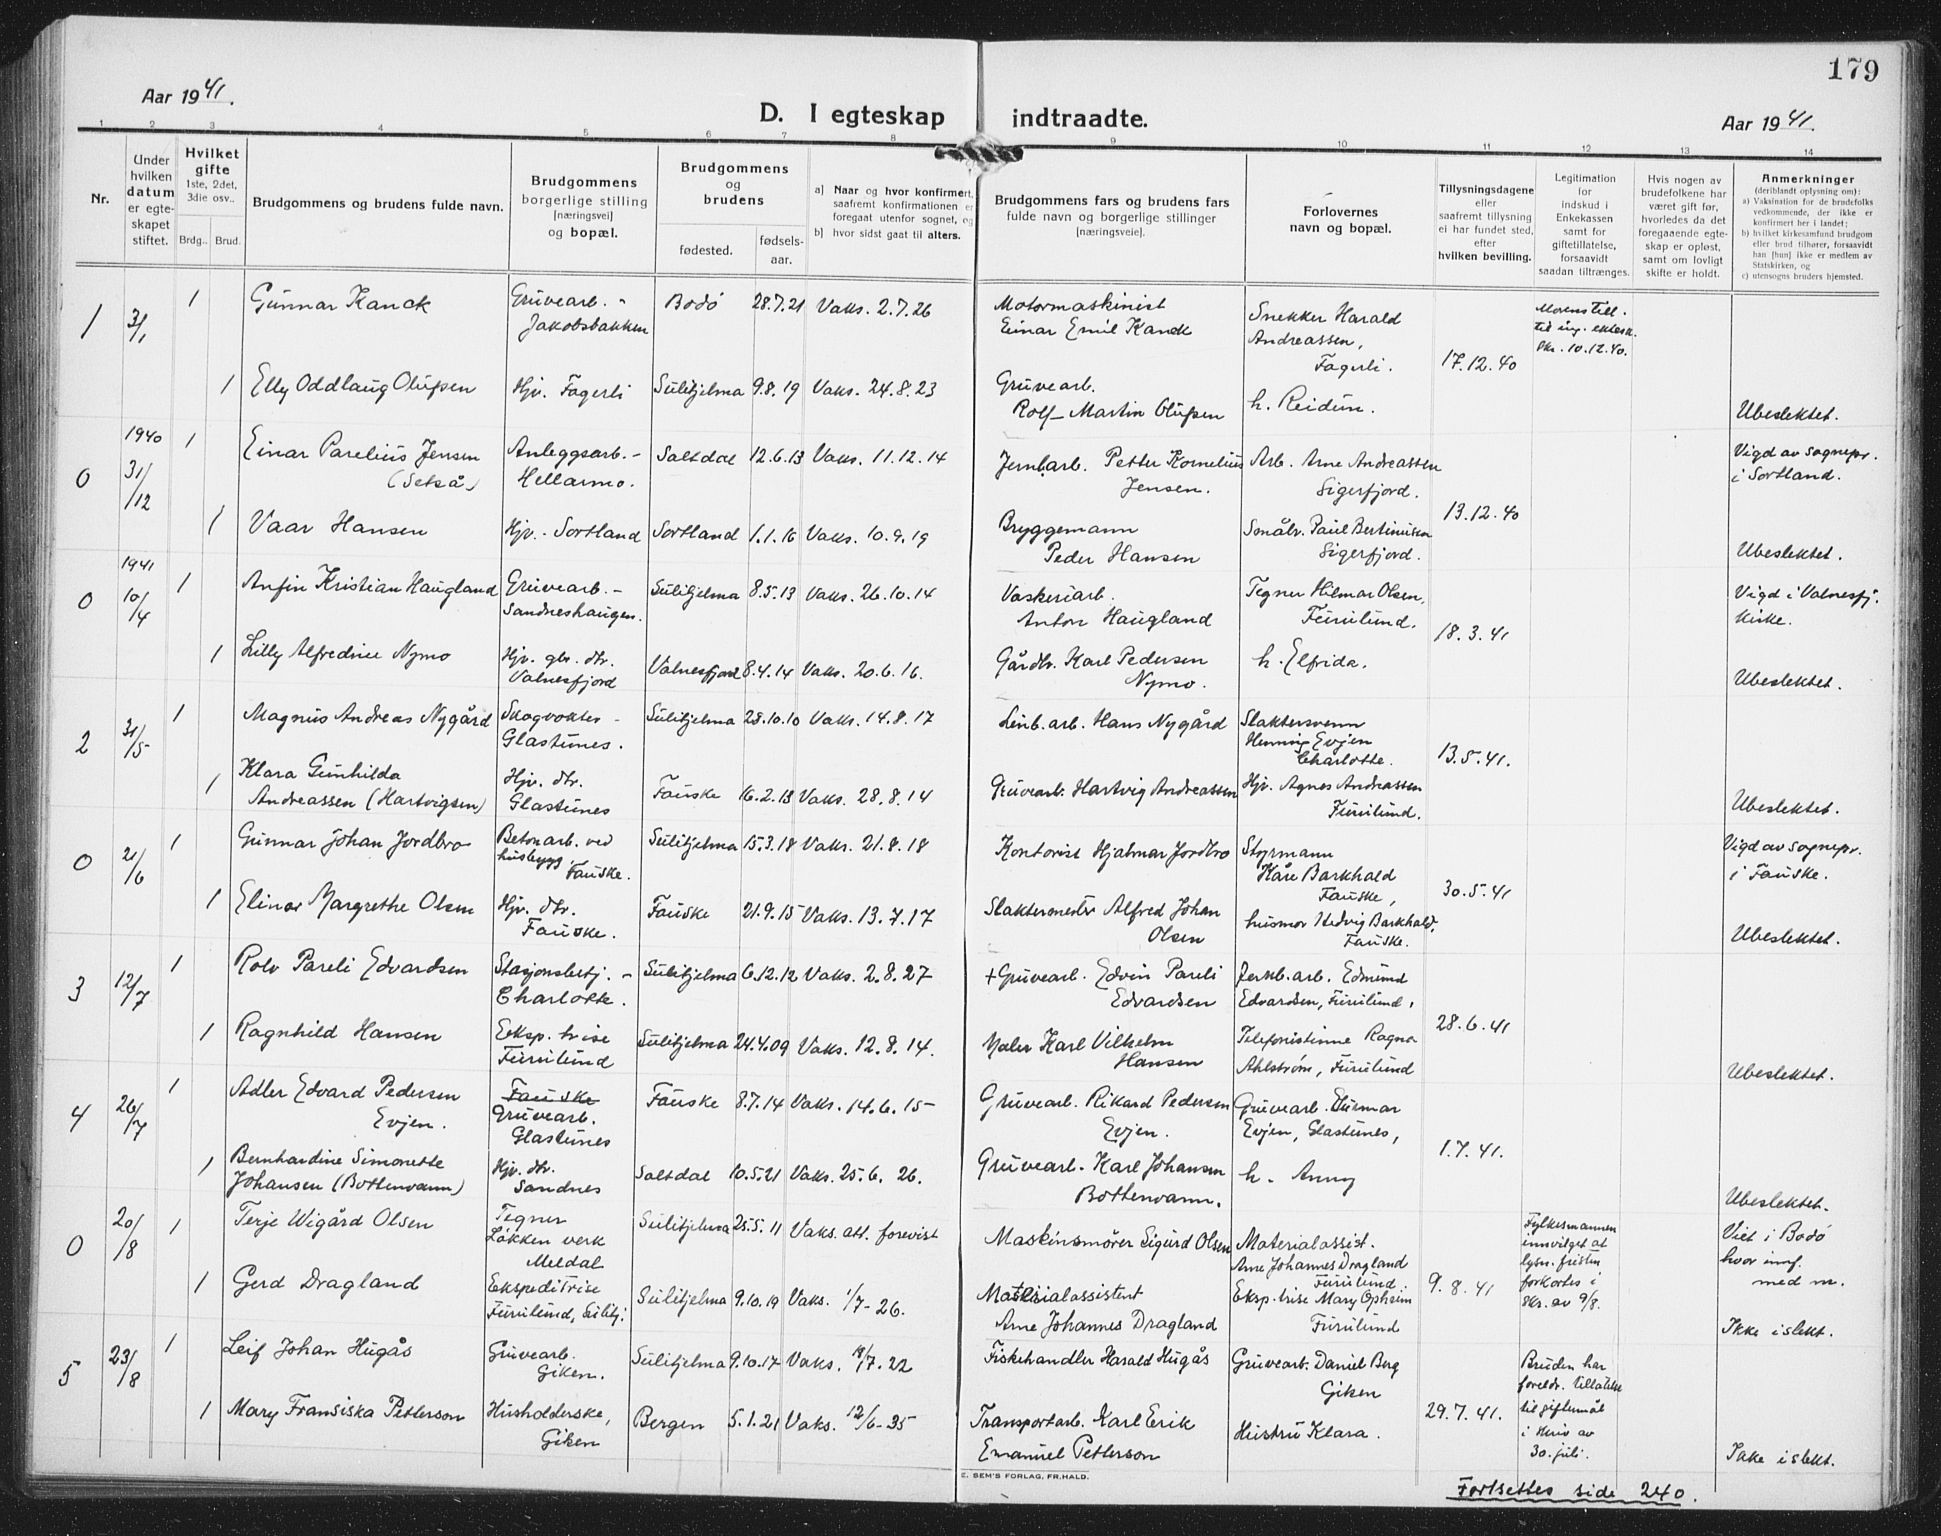 179
Aar 1941.
D. I egteskap indtraadte.
Aar 1941.
1 2 3 4 5 6 7 8 9 10 11 12 13 14
Nr.
Under hvilken datum er egte-skapet stiftet.
Hvilket gifte
1ste, 2det, 3die osv..
Brdg.. Brud.
Brudgommens og brudens fulde navn.
Brudgommens borgerlige stilling [næringsvei] og bopæl.
Brudgommens og brudens
fødested.
fødsels-aar.
a) Naar og hvor konfirmert, saafremt konfirmationen er foregaat utenfor sognet, og
b) hvor sidst gaat til alters.
Brudgommens fars og brudens fars fulde navn og borgerlige stillinger [næringsveie].
Forlovernes navn og bopæl.
Tillysningsdagene eller saafremt tillysning ei har fundet sted, efter hvilken bevilling.
Legitimation for indskud i Enkekassen samt for giftetillatelse, forsaavidt saadan tiltrænges.
Hvis nogen av brudefolkene har været gift før, hvorledes da det foregaaende egte-skap er opløst, samt om lovligt skifte er holdt.
Anmerkninger
(deriblandt oplysning om):
a) Vaksination for de brudefolks vedkommende, der ikke er konfirmert her i landet;
b) hvilket kirkesamfund brudgom eller brud tilhører, forsaavidt han [hun] ikke er medlem av Statskirken, og
c) utensogns bruders hjemsted.
1 3/1 1 Gunnar Kanck Gruvearb. - Jakobsbakken Bodö 28.7.21 Vaks. 2.7.26 Motormaskinist Einar Emil Kanck Snekker Harald Andreassen, Fagerli. 17.12.40 Morens till. til ing. ektesk. Skr. 10.12.40.
1 Elly Oddlaug Olufsen Hjv. Fagerli Sulitjelma 9.8.19 Vaks. 24.8.23 Gruvearb. Rolf Martin Olufsen h. Reidun. Ubeslektet.
0 1940 31/12 1 Einar Parelius Jensen (Setså) Anleggsarb. - Hellarmo. Saltdal 12.6.13 Vaks. 11.12.14 Jernb.arb. Petter Kornelius Jensen. Arb. Arne Andreassen Sigerfjord. 13.12.40 Vigd av sognepr. i Sortland.
1 Vaar Hansen Hjv. - Sortland Sortland 1.1.16 Vaks. 10.9.19 Bryggemann Peder Hansen Småbr. Paul Bertinussen Sigerfjord. Ubeslektet.
0 1941 10/4 1 Anfin Kristian Haugland Gruvearb. - Sandneshaugen. Sulitjelma 8.5.13 Vaks. 26.10.14 Vaskeriarb. Anton Haugland Tegner Hilmar Olsen, Furulund. 18.3.41 Vigd i Valnesfj. kirke.
1 Lilly Alfredine Nymo Hjv. gbr. dtr. Valnesfjord Valnesfjord 8.4.14 Vaks. 20.6.16. Gårdbr. Karl Pedersen Nymo. h. Elfrida. Ubeslektet.
2 31/5 1 Magnus Andreas Nygård Skogvokter - Glastunes. Sulitjelma 28.10.10 Vaks. 14.8.17 Linb.arb. Hans Nygård Slaktersvenn Henning Evjen Charlotte. 13.5.41.
1 Klara Gunhilda Andreassen (Hartvigsen) Hjv. dtr. Glastunes Fauske 16.2.13 Vaks. 28.8.14 Gruvearb. Hartvig Andreassen Hjv. Agnes Andreassen Furulund. Ubeslektet.
0 21/6 1 Gunnar Johan Jordbro Betonarb. ved husbygg. Fauske. Sulitjelma 15.3.18 Vaks. 21.8.18 Kontorist Hjalmar Jordbro Styrmann Kåre Barkhald Fauske, 30.5.41 Vigd av sognepr. i Fauske.
1 Elinor Margrethe Olsen Hjv. dtr. Fauske. Fauske 21.9.15 Vaks. 13.7.17 Slaktermester Alfred Johan Olsen husmor Hedvig Barkhald, Fauske. Ubeslektet.
3 12/7 1 Rolv Pareli Edvardsen Stasjonsbetj. - Charlotte. Sulitjelma 6.12.12 Vaks. 2.8.27 + Gruvearb. Edvin Pareli Edvardsen Jernb.arb. Edmund Edvardsen, Furulund, 28.6.41
1 Ragnhild Hansen Eksp. trise Furulund Sulitjelma 24.4.09 Vaks. 12.8.14. Maler Karl Vilhelm Hansen Telefonistinne Ragna Ahlstrøm, Furulund Ubeslektet.
4 26/7 1 Adler Edvard Pedersen Evjen. Fauske Gruvearb. Glastunes Fauske 8.7.14 Vaks. 14.6.15 Gruvearb. Rikard Pedersen Evjen. Gruvearb. Gunnar Evjen, Glastunes, 1.7.41.
1 Bernhardine Simonette Johansen (Bottenvann) Hjv. dtr. Sandnes Saltdal 10.5.21 Vaks. 25.6.26. Gruvearb. Karl Johansen Bottenvann. h. Anny Ubeslektet.
0 20/8 1 Terje Wigård Olsen Tegner Løkken verk Meldal Sulitjelma 25.5.11 Vaks. att. forevist Maskinsmører Sigurd Olsen Materialassist. Arne Johannes Dragland Furulund 9.8.41 Fylkesmannen innvilget at lysn. fristen forkortes i skr. av 9/8. Viet i Bodö hvor innf. med nr.
1 Gerd Dragland Ekspeditrise Furulund, Sulitj. Sulitjelma 9.10.19 Vaks. 1/7-26. Materialassistent Arne Johannes Dragland Eksp. trise Mary Opheim Furulund Ikke i slekt.
5 23/8 1 Leif Johan Hugås Gruvearb. Giken. Sulitjelma 9.10.17 Vaks. 18/7.22 Fiskehandler Harald Hugås Gruvearb. Daniel Berg Giken 29.7.41. Bruden har foreldr. tillatelse til giftermål i skriv av 30. juli.
1 Mary Fransiska Petterson Husholderske, Giken Bergen 5.1.21 Vaks. 12/6-35 Transportarb. Karl Erik Emanuel Petterson Hustru Klara. Ikke i slekt.
E. SEM'S FORLAG, FR.HALD.
Fortsettes side 240.